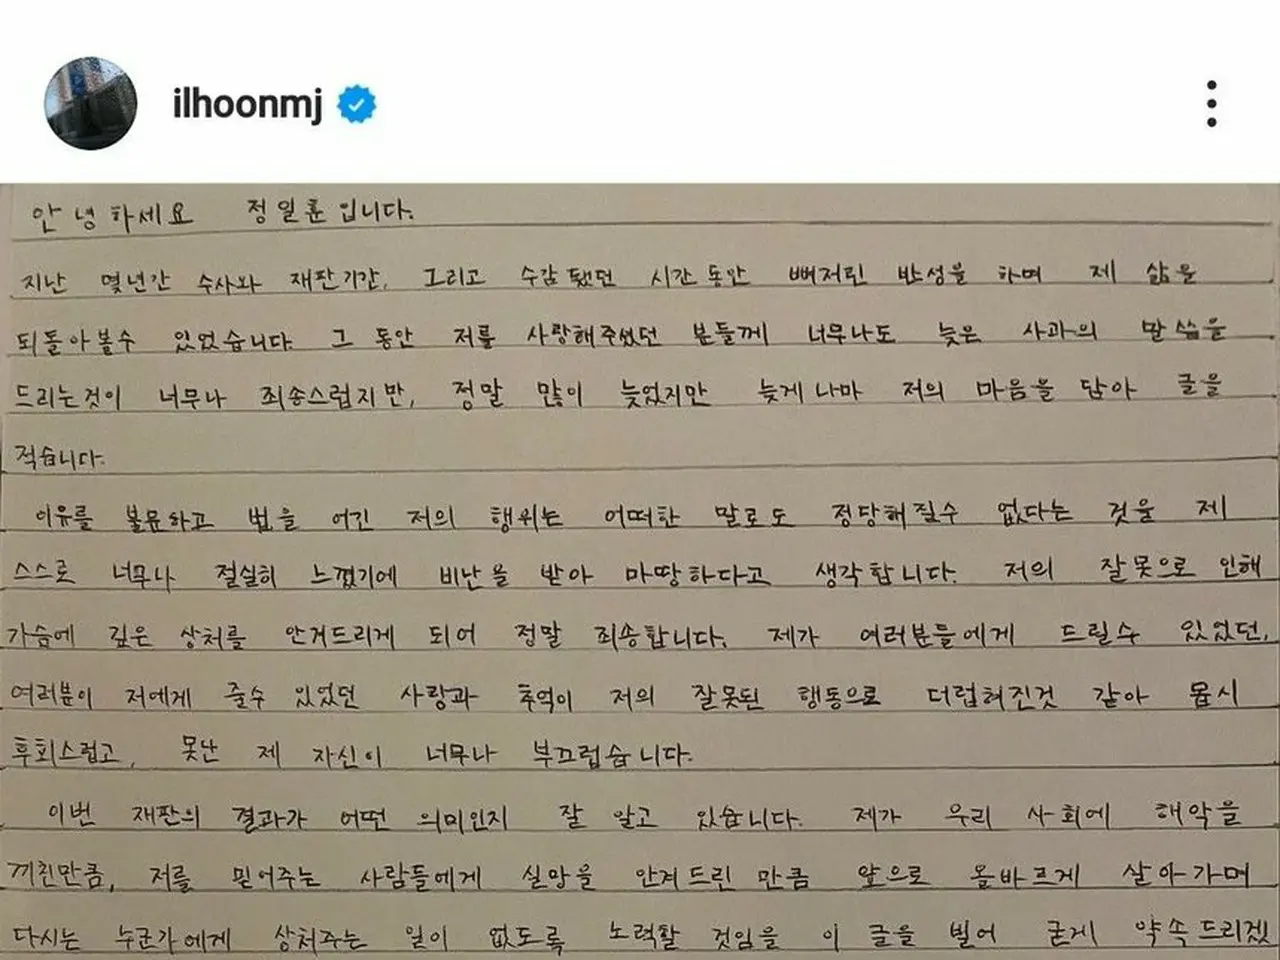 ilhoonmj
안녕하세요 정일훈입니다.
지난 몇년간 수사와 재판기간, 그리고 수감됐던 시간동안 뼈저린 반성을 하며 제 삶을
되돌아볼수 있었습니다. 그 동안 저를 사랑해주셨던 분들께 너무나도 늦은 사과의 말씀을
드리는것이 너무나 죄송스럽지만, 정말 많이 늦었지만 늦게나마 저의 마음을 담아 글을
적습니다.
이유를 불문하고 법을 어긴 저의 행위는 어떠한 말로도 정당해질수 없다는 것을 제
스스로 너무나 절실히 느꼈기에 비난을 받아 마땅하다고 생각합니다. 저의 잘못으로 인해
가슴에 깊은 상처를 안겨드리게 되어 정말 죄송합니다. 제가 여러분들에게 드릴수 있었던,
여러분이 저에게 줄수 있었던 사랑과 추억이 저의 잘못된 행동으로 더럽혀진것 같아 몹시
후회스럽고, 못난 제 자신이 너무나 부끄럽습니다.
이번 재판의 결과가 어떤 의미인지 잘 알고 있습니다. 제가 우리 사회에 해악을
끼친만큼, 저를 믿어주는 사람들에게 실망을 안겨드린 만큼 앞으로 올바르게 살아가며
다시는 누군가에게 상처주는 일이 없도록 노력할 것임을 이 글을 빌어 굳게 약속드리겠